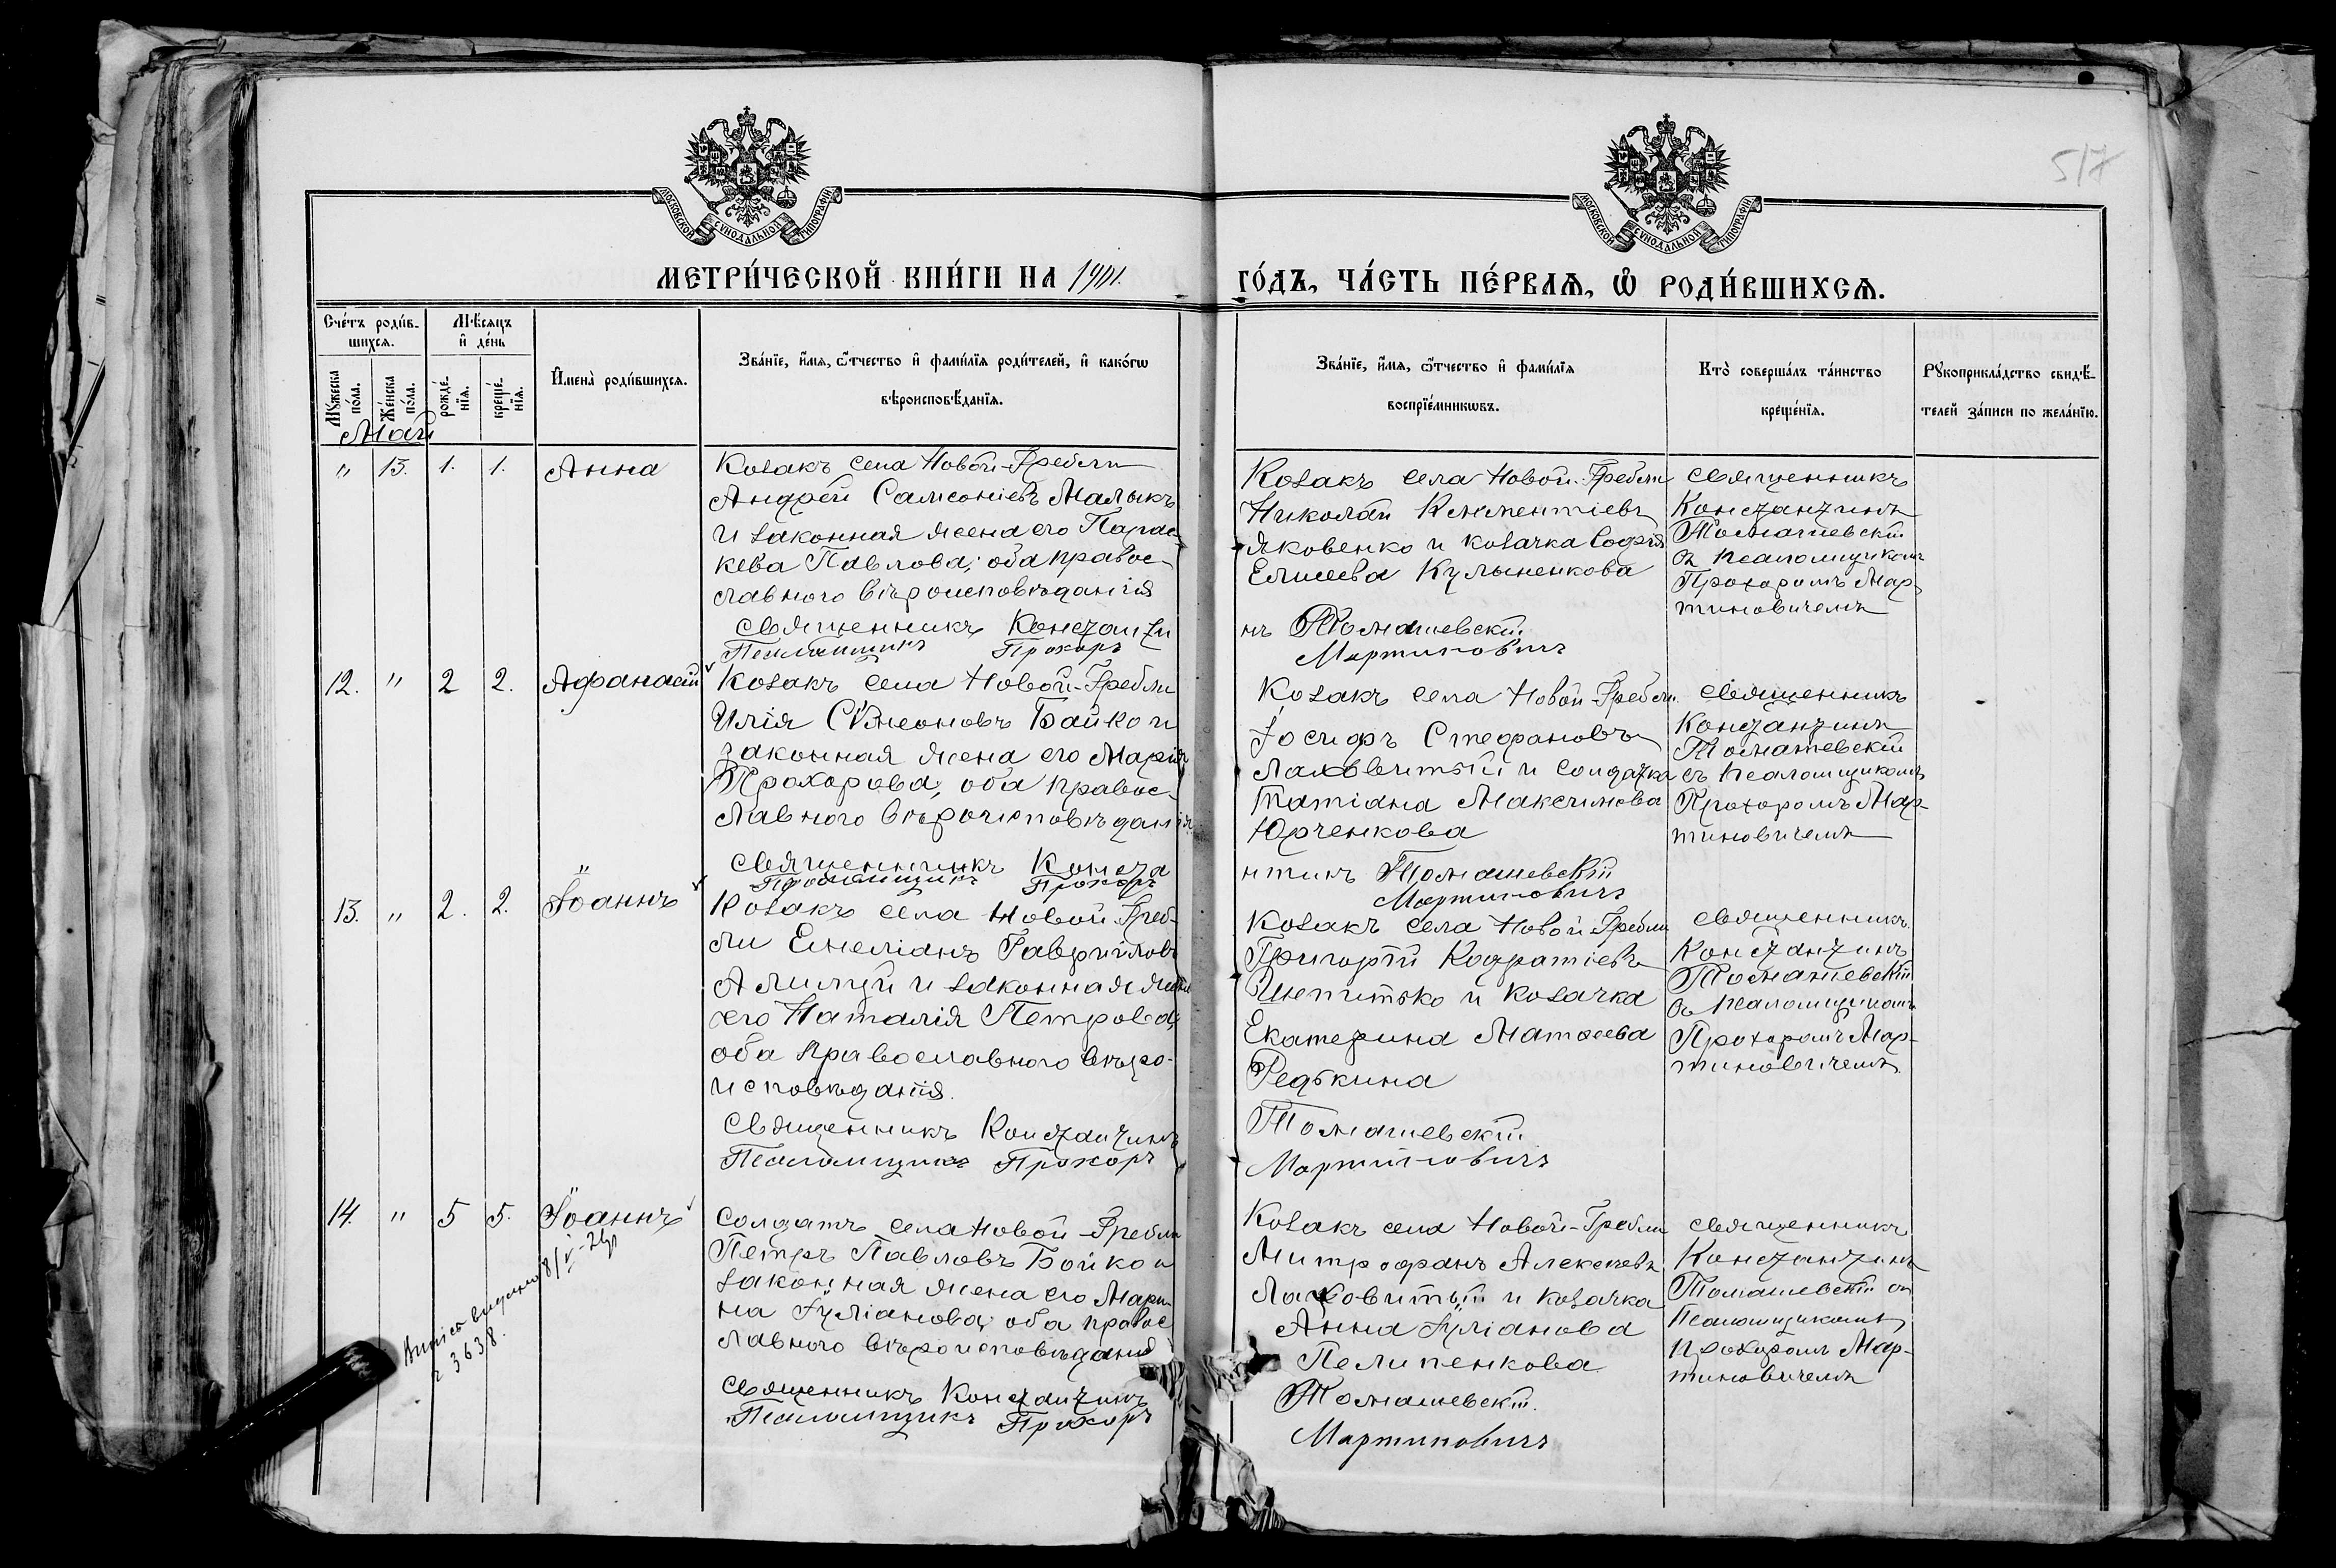 517
МОСКОВСКОЙ СѴНОДАЛЬНОЙ ТИПОГРАФІИ
МОСКОВСКОЙ СѴНОДАЛЬНОЙ ТИПОГРАФІИ
МЕТРИ́ЧЕСКОЙ КНИ́ГИ НА 1901. ГО́ДЪ, ЧА́СТЬ ПЕ́РВАѦ, Ѡ҆ РОДИ́ВШИХСѦ.
Сче́тъ роди́в-
шихсѧ.
Мꙋ́жеска по́ла.
Же́нска по́ла.
Мѣ́сѧцъ
и҆ де́нь
рожде́-
нїѧ.
креще́-
нїѧ.
И҆мена̀ роди́вшихсѧ.
Зва́нїе, и҆́мѧ, ѻ҆́тчество и҆ фами́лїѧ роди́телей, и҆ како́гѡ
вѣроисповѣ́данїѧ.
Зва́нїе, и҆́мѧ, ѻ҆́тчество и҆ фами́лїѧ
воспрїе́мникѡвъ.
Кто̀ соверша́лъ та́инство
креще́нїѧ.
Рꙋкоприкла́дство свидѣ́-
телей за́писи по жела́нїю.
Май
" 13. 1. 1. Анна
Козакъ села Новой-Гребли
Андрей Самсоніевъ Малыкъ
и законная жена его Парас-
кева Павлова; оба правос-
лавного вѣроисповѣданія
Священникъ Константи
Псаломщикъ Прохоръ
Козакъ села Новой-Гребли
Николай Климентіевъ
Яковенко и козачка Софія
Елисеева Кулыненкова
нъ Томашевскій
Мартиновичъ
Священникъ
Константинъ
Томашевскій
съ псаломщикомъ
Прохоромъ Мар-
тиновичемъ
12. " 2 2. Афанасій
Козакъ села Новой-Гребли
Илія Сѵмеоновъ Бойко и
законная жена его Марія
Прохорова; оба правос-
лавного вѣроисповѣданія
Священникъ Конста
Псаломщикъ Прохоръ
Козакъ села Новой-Гребли
Іосифъ Стефановъ
Лаховитый и солдатка
Татіана Максимова
Юрченкова
нтинъ Томашевскій
Мартиновичъ
Священникъ
Константинъ
Томашевскій
съ псаломщикомъ
Прохоромъ Мар-
тиновичемъ
13. " 2. 2. Іоаннъ
Козакъ села Новой Греб-
ли Емеліанъ Гавріиловъ
и законная жена
его Наталія Петрова;
оба православного вѣро-
исповѣданія.
Священникъ Константинъ
Псаломщикъ Прохоръ
Козакъ села Новой Гребли
Григорій Кодратіевъ
Шепитько и козачка
Екатерина Матѳеева
Редькина
Томашевскій
Мартиновичъ
Священникъ
Константинъ
Томашевскій
съ псаломщикомъ
Прохоромъ Мар-
тиновичемъ
14. " 5 5. Іоаннъ
Солдатъ села Новой-Гребли
Петръ Павловъ Бойко и
законная жена его Мари-
на Іуліанова; оба правос-
лавного вѣроисповѣданія
Священникъ Константинъ
Псаломщикъ Прохоръ
Козакъ села Новой-Гребли
Митрофанъ Алексѣевъ
Лаховитый и козачка
Анна Іуліанова
Пелипенкова
Томашевскій
Мартиновичъ
Священникъ
Константинъ
Томашевскій съ
псаломщикомъ
Прохоромъ Мар-
тиновичемъ
3638.